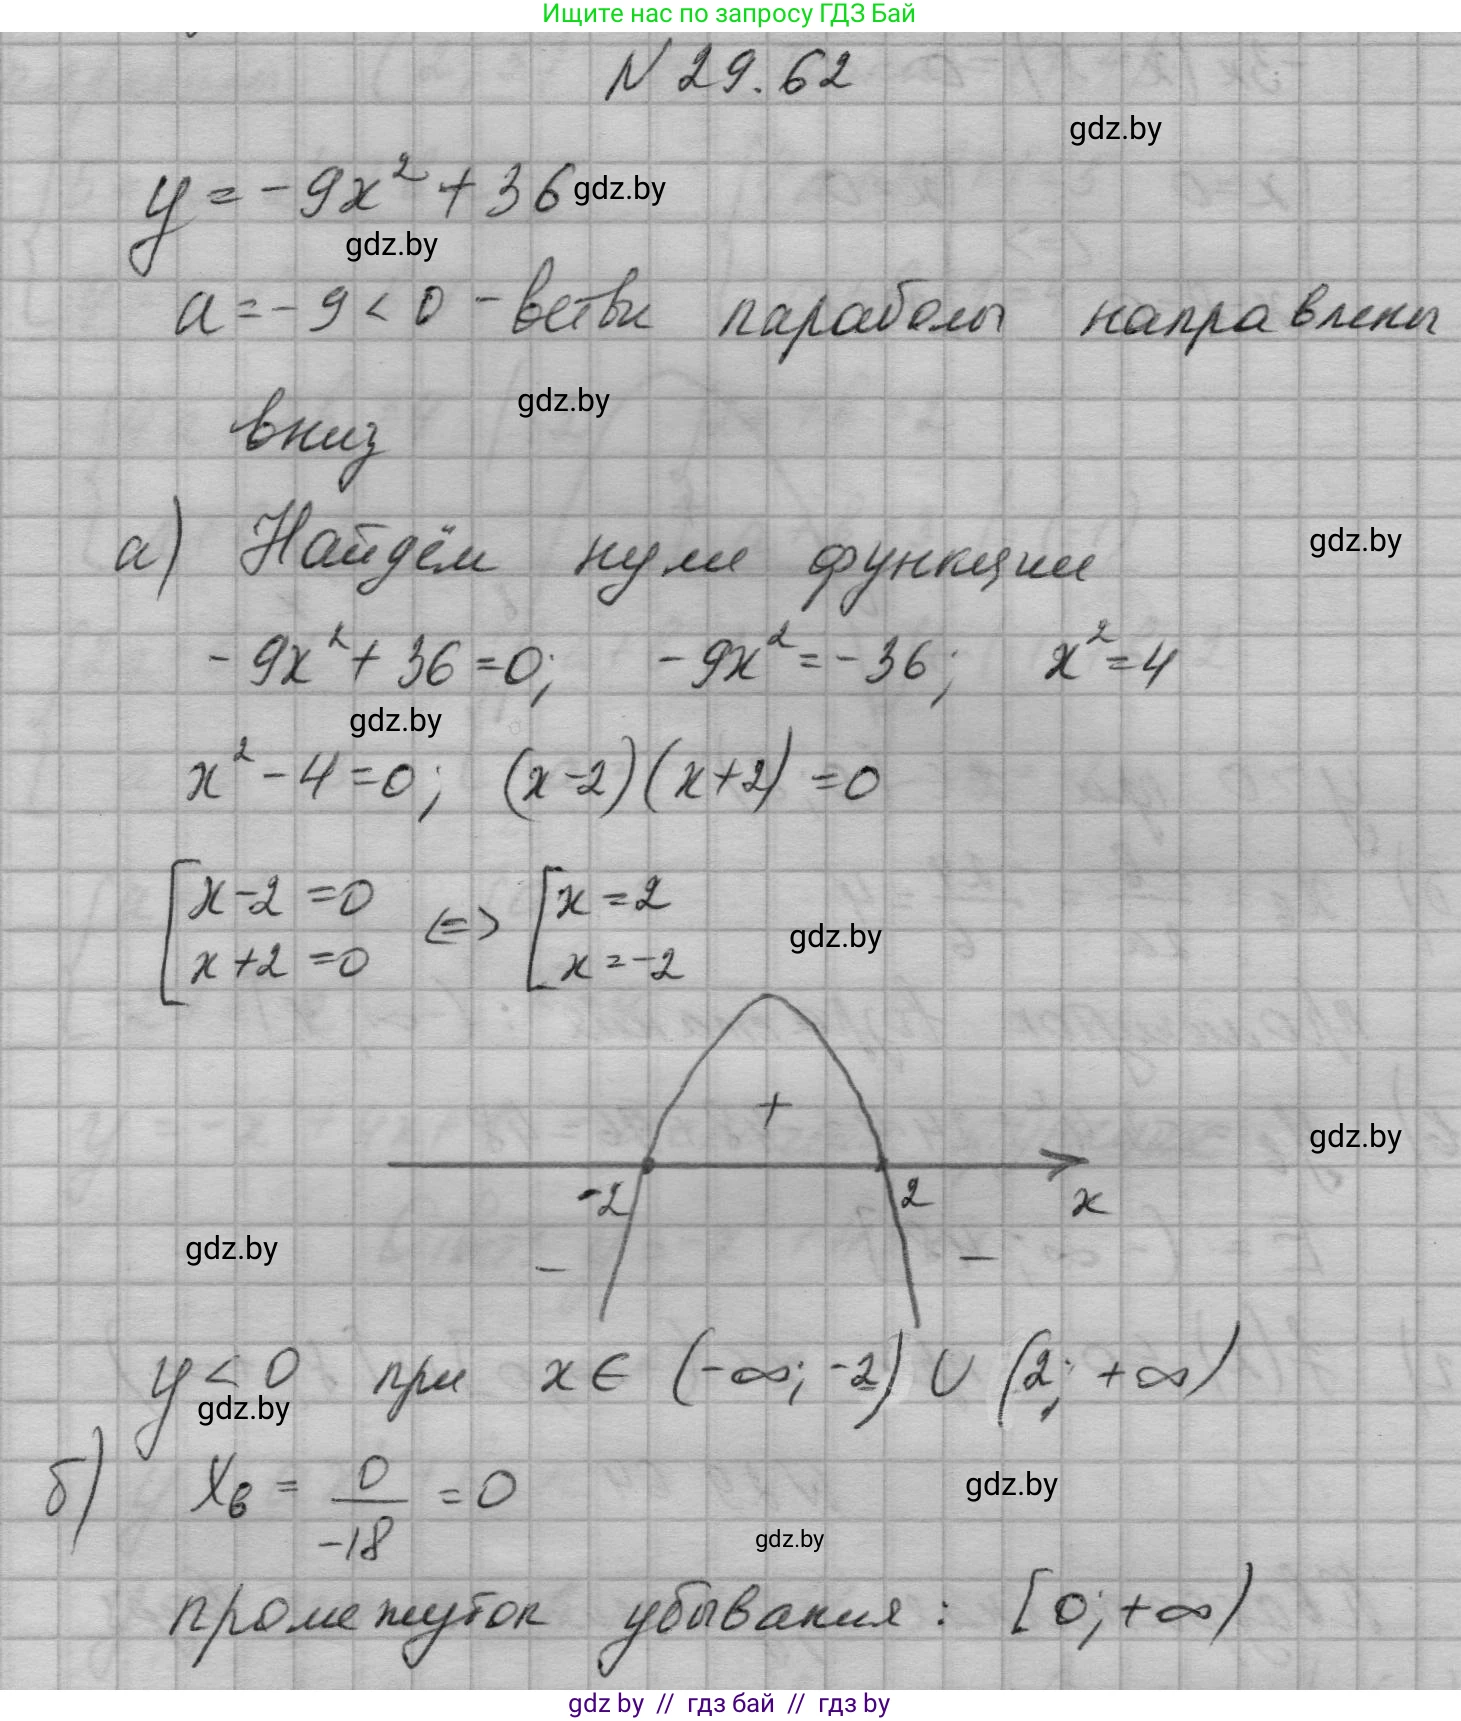 Ищите нас по запросу ГДЗ Бай
N 29.62
gdz.by
y = -9x² + 36 gdz.by
gdz.by
a = -9 < 0 - ветви параболы направлены
вниз gdz.by
а) Найдём нули функции gdz.by
-9x² + 36 = 0; -9x² = -36; x² = 4
gdz.by
x² - 4 = 0; (x-2)(x+2) = 0
[x-2 = 0 <=> [x = 2
x+2 = 0 x = -2
gdz.by
+
gdz.by
-2 2 x
gdz.by
- -
y < 0 при x ∈ (-∞; -2) ∪ (2; +∞)
gdz.by
б) xв = 0/-18 = 0 gdz.by
gdz.by
промежуток убывания: [0; +∞)
gdz by // гдз бай // гдз by